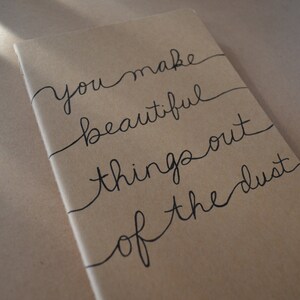 you make
beautiful
things out
of the dust